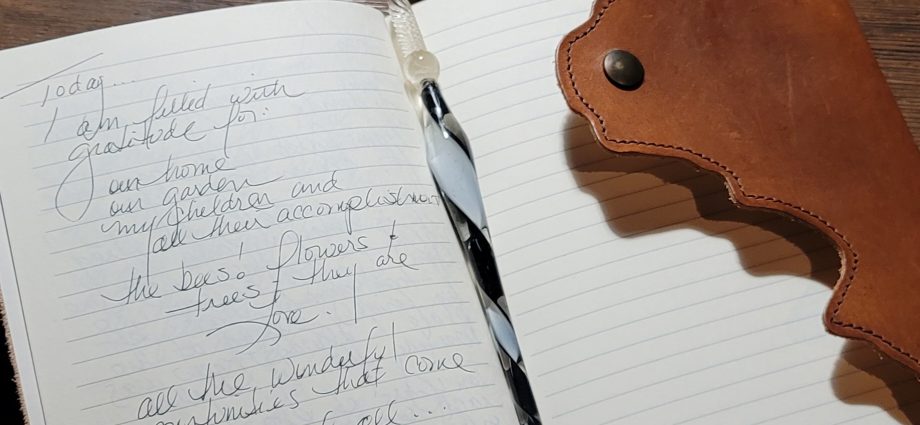 Today...
I am filled with
gratitude for:
our home
our garden
my children and
all their accomplishments
the bees! flowers &
trees! they are
love.
all the wonderful
opportunities that come
all...